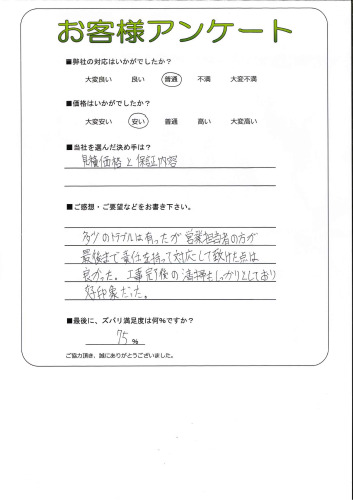 お客様アンケート
■弊社の対応はいかがでしたか?
大変良い 良い 普通 不満 大変不満
■価格はいかがでしたか?
大変安い 安い 普通 高い 大変高い
■当社を選んだ決め手は?
見積価格と保証内容
■ご感想・ご要望などをお書き下さい。
多少のトラブルは有ったが営業担当者の方が
最後まで責任を持って対応して頂けた点は
良かった。工事完了後の清掃もしっかりとしており
好印象だった。
■最後に、ズバリ満足度は何%ですか?
75 %
ご協力頂き、誠にありがとうございました。